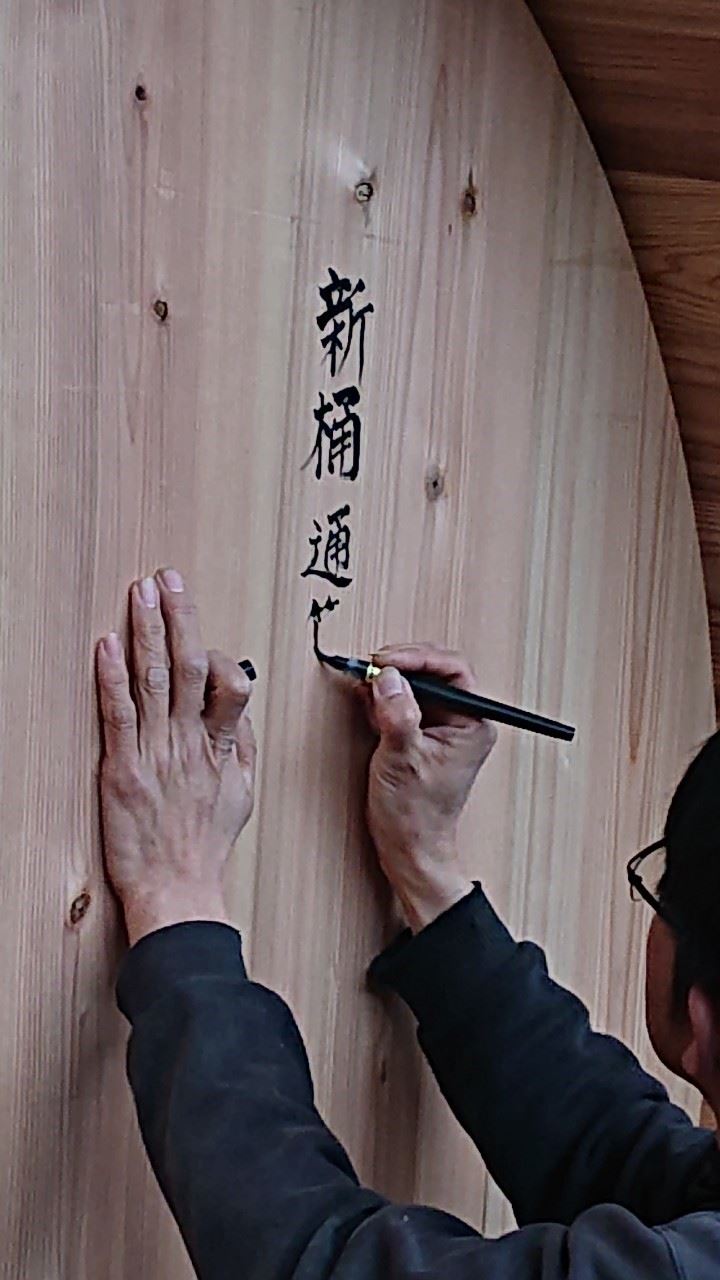 新桶通